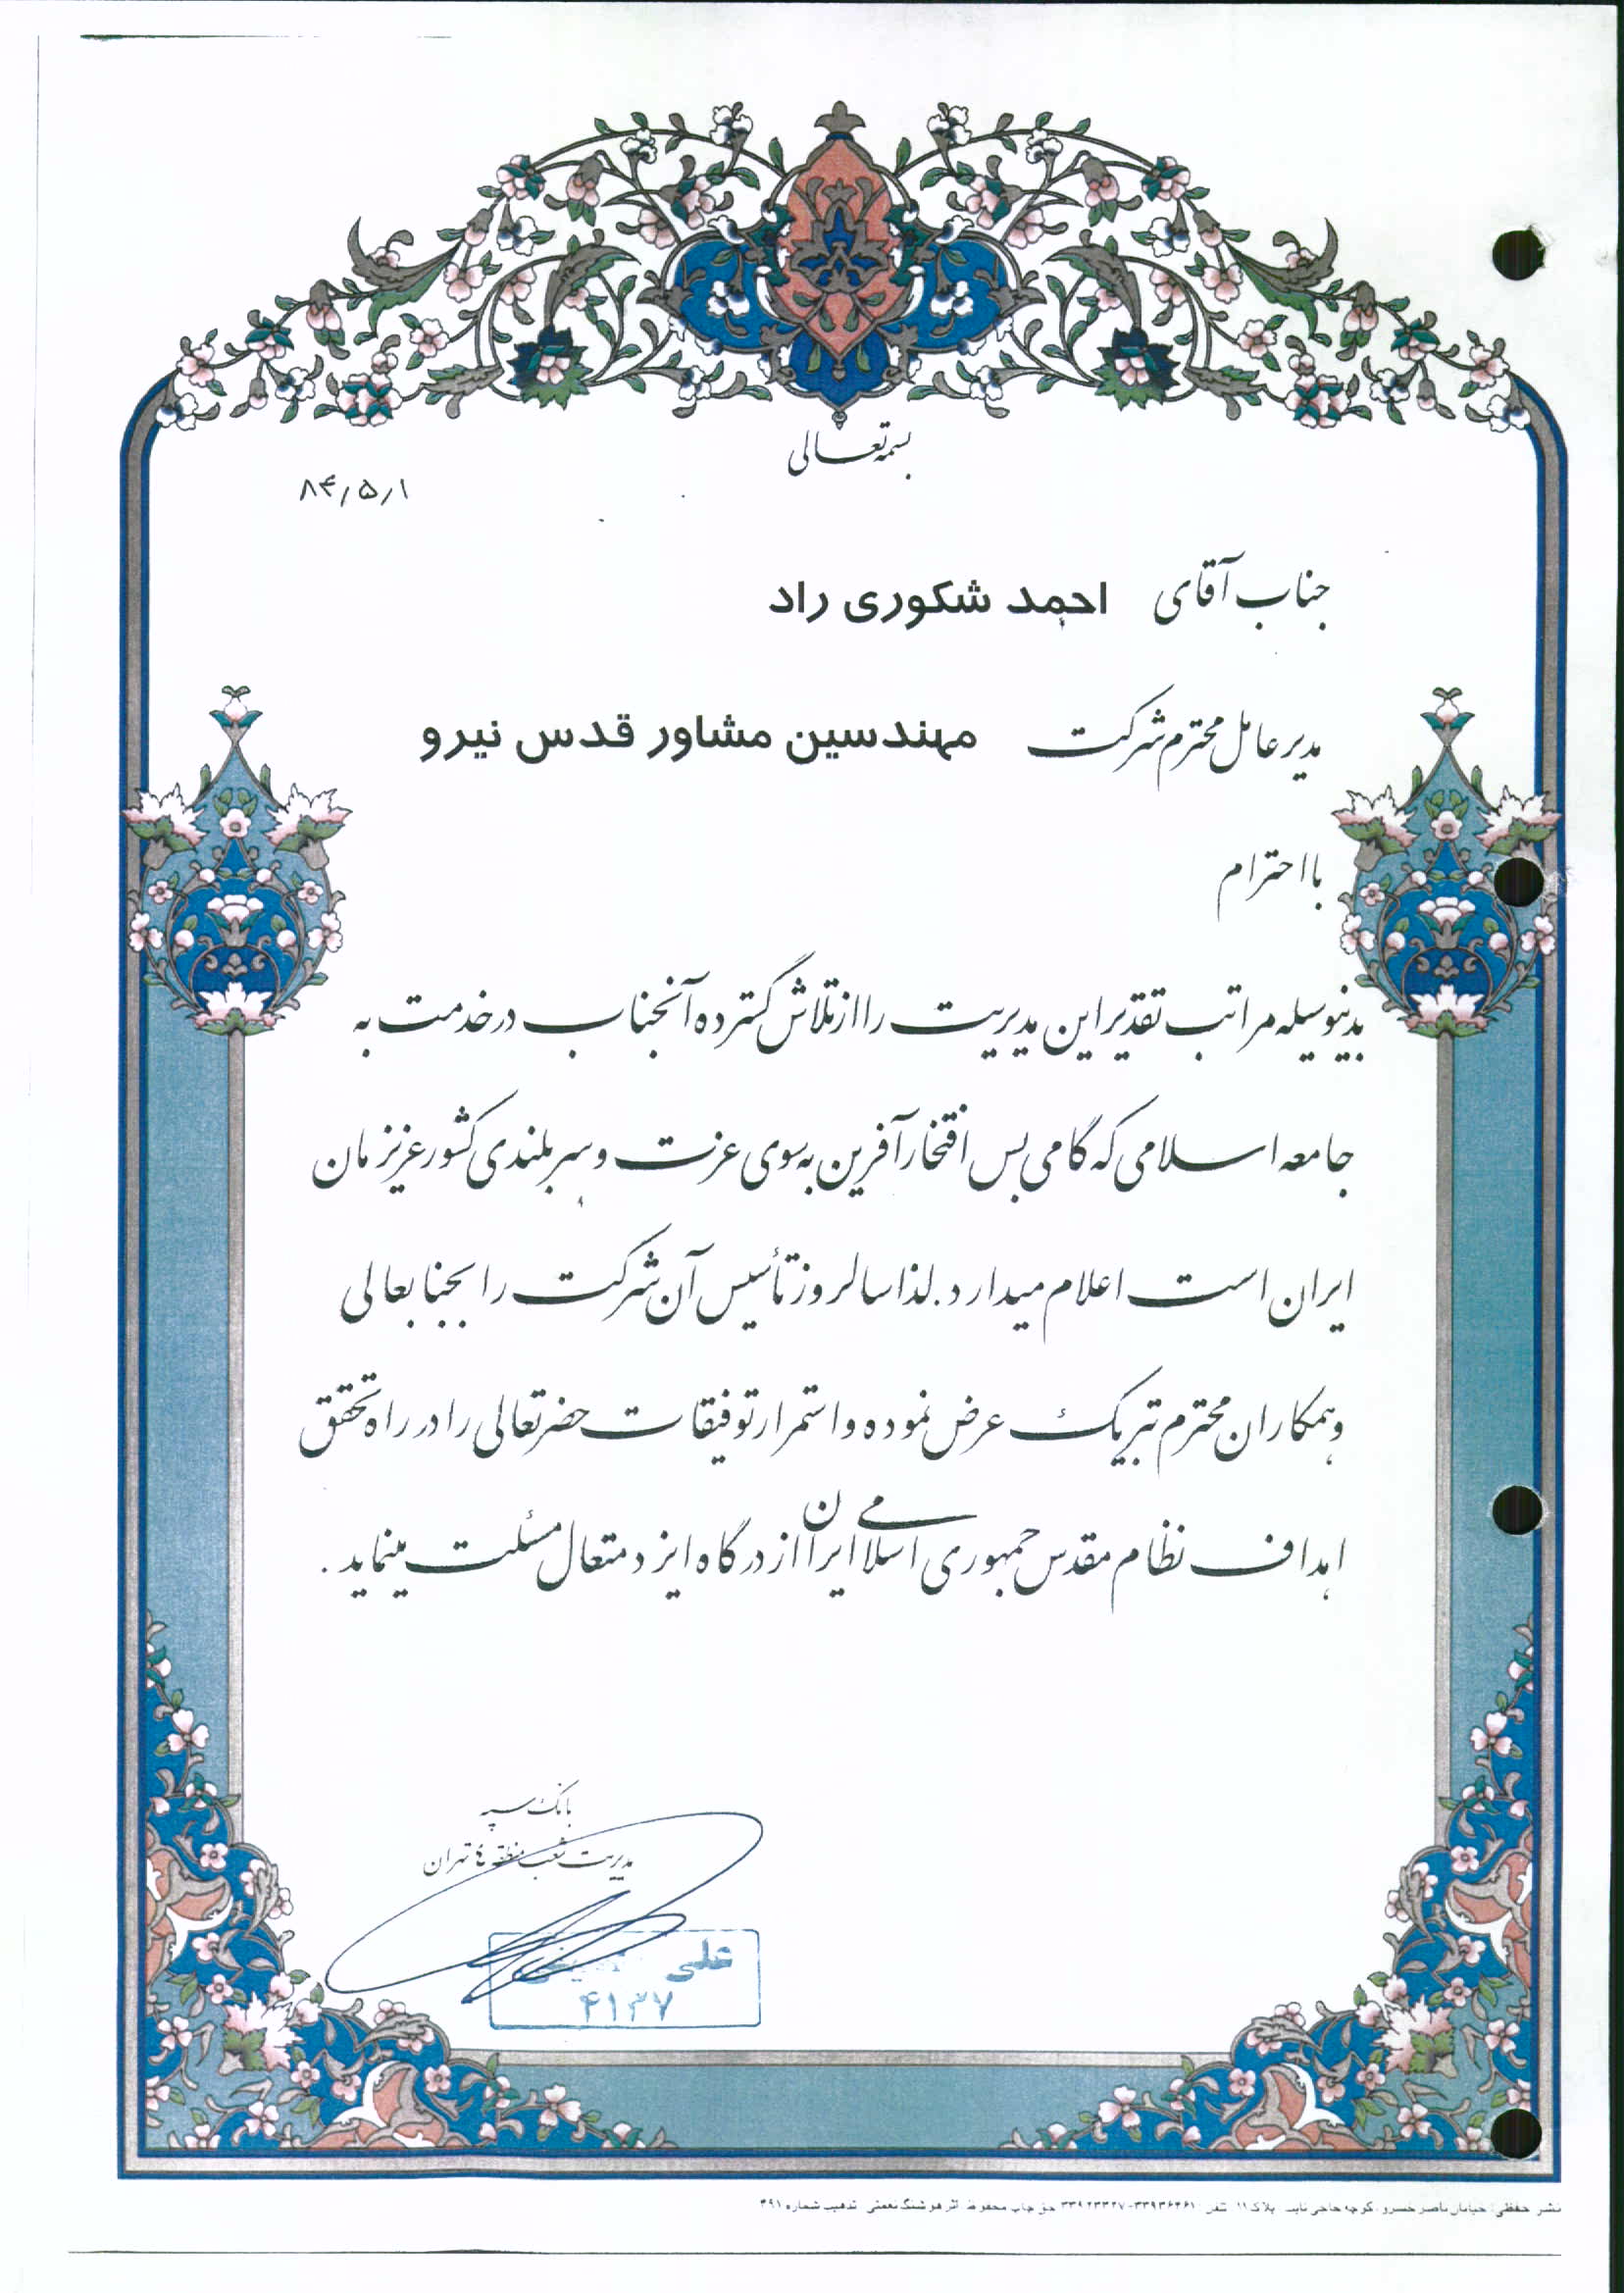 بسمه تعالی
۸۴/۵/۱
جناب آقای احمد شکوری راد
مدیر عامل محترم شرکت مهندسین مشاور قدس نیرو
با احترام
بدینوسیله مراتب تقدیر این مدیریت را از تلاش گسترده آنجناب در خدمت به
جامعه اسلامی که گامی بس افتخار آفرین به سوی عزت و سربلندی کشور عزیزمان
ایران است اعلام میدارد. لذا سالروز تأسیس آن شرکت را بجنابعالی
و همکاران محترم تبریک عرض نموده و استمرار توفیقات حضرتعالی را در راه تحقق
اهداف نظام مقدس جمهوری اسلامی ایران از درگاه ایزد متعال مسئلت مینماید.
بانک سپه
مدیریت شعب منطقه تهران
علی
۴۱۳۷
نشر حفظی: خیابان ناصر خسرو، کوچه حاجی نایب پلاک ۱۱ تلفن: ۳۳۹۳۶۴۶۱-۳۳۹۲۳۳۲۷ حق چاپ محفوظ اثر هوشنگ نعمتی تذهیب شماره ۴۹۱